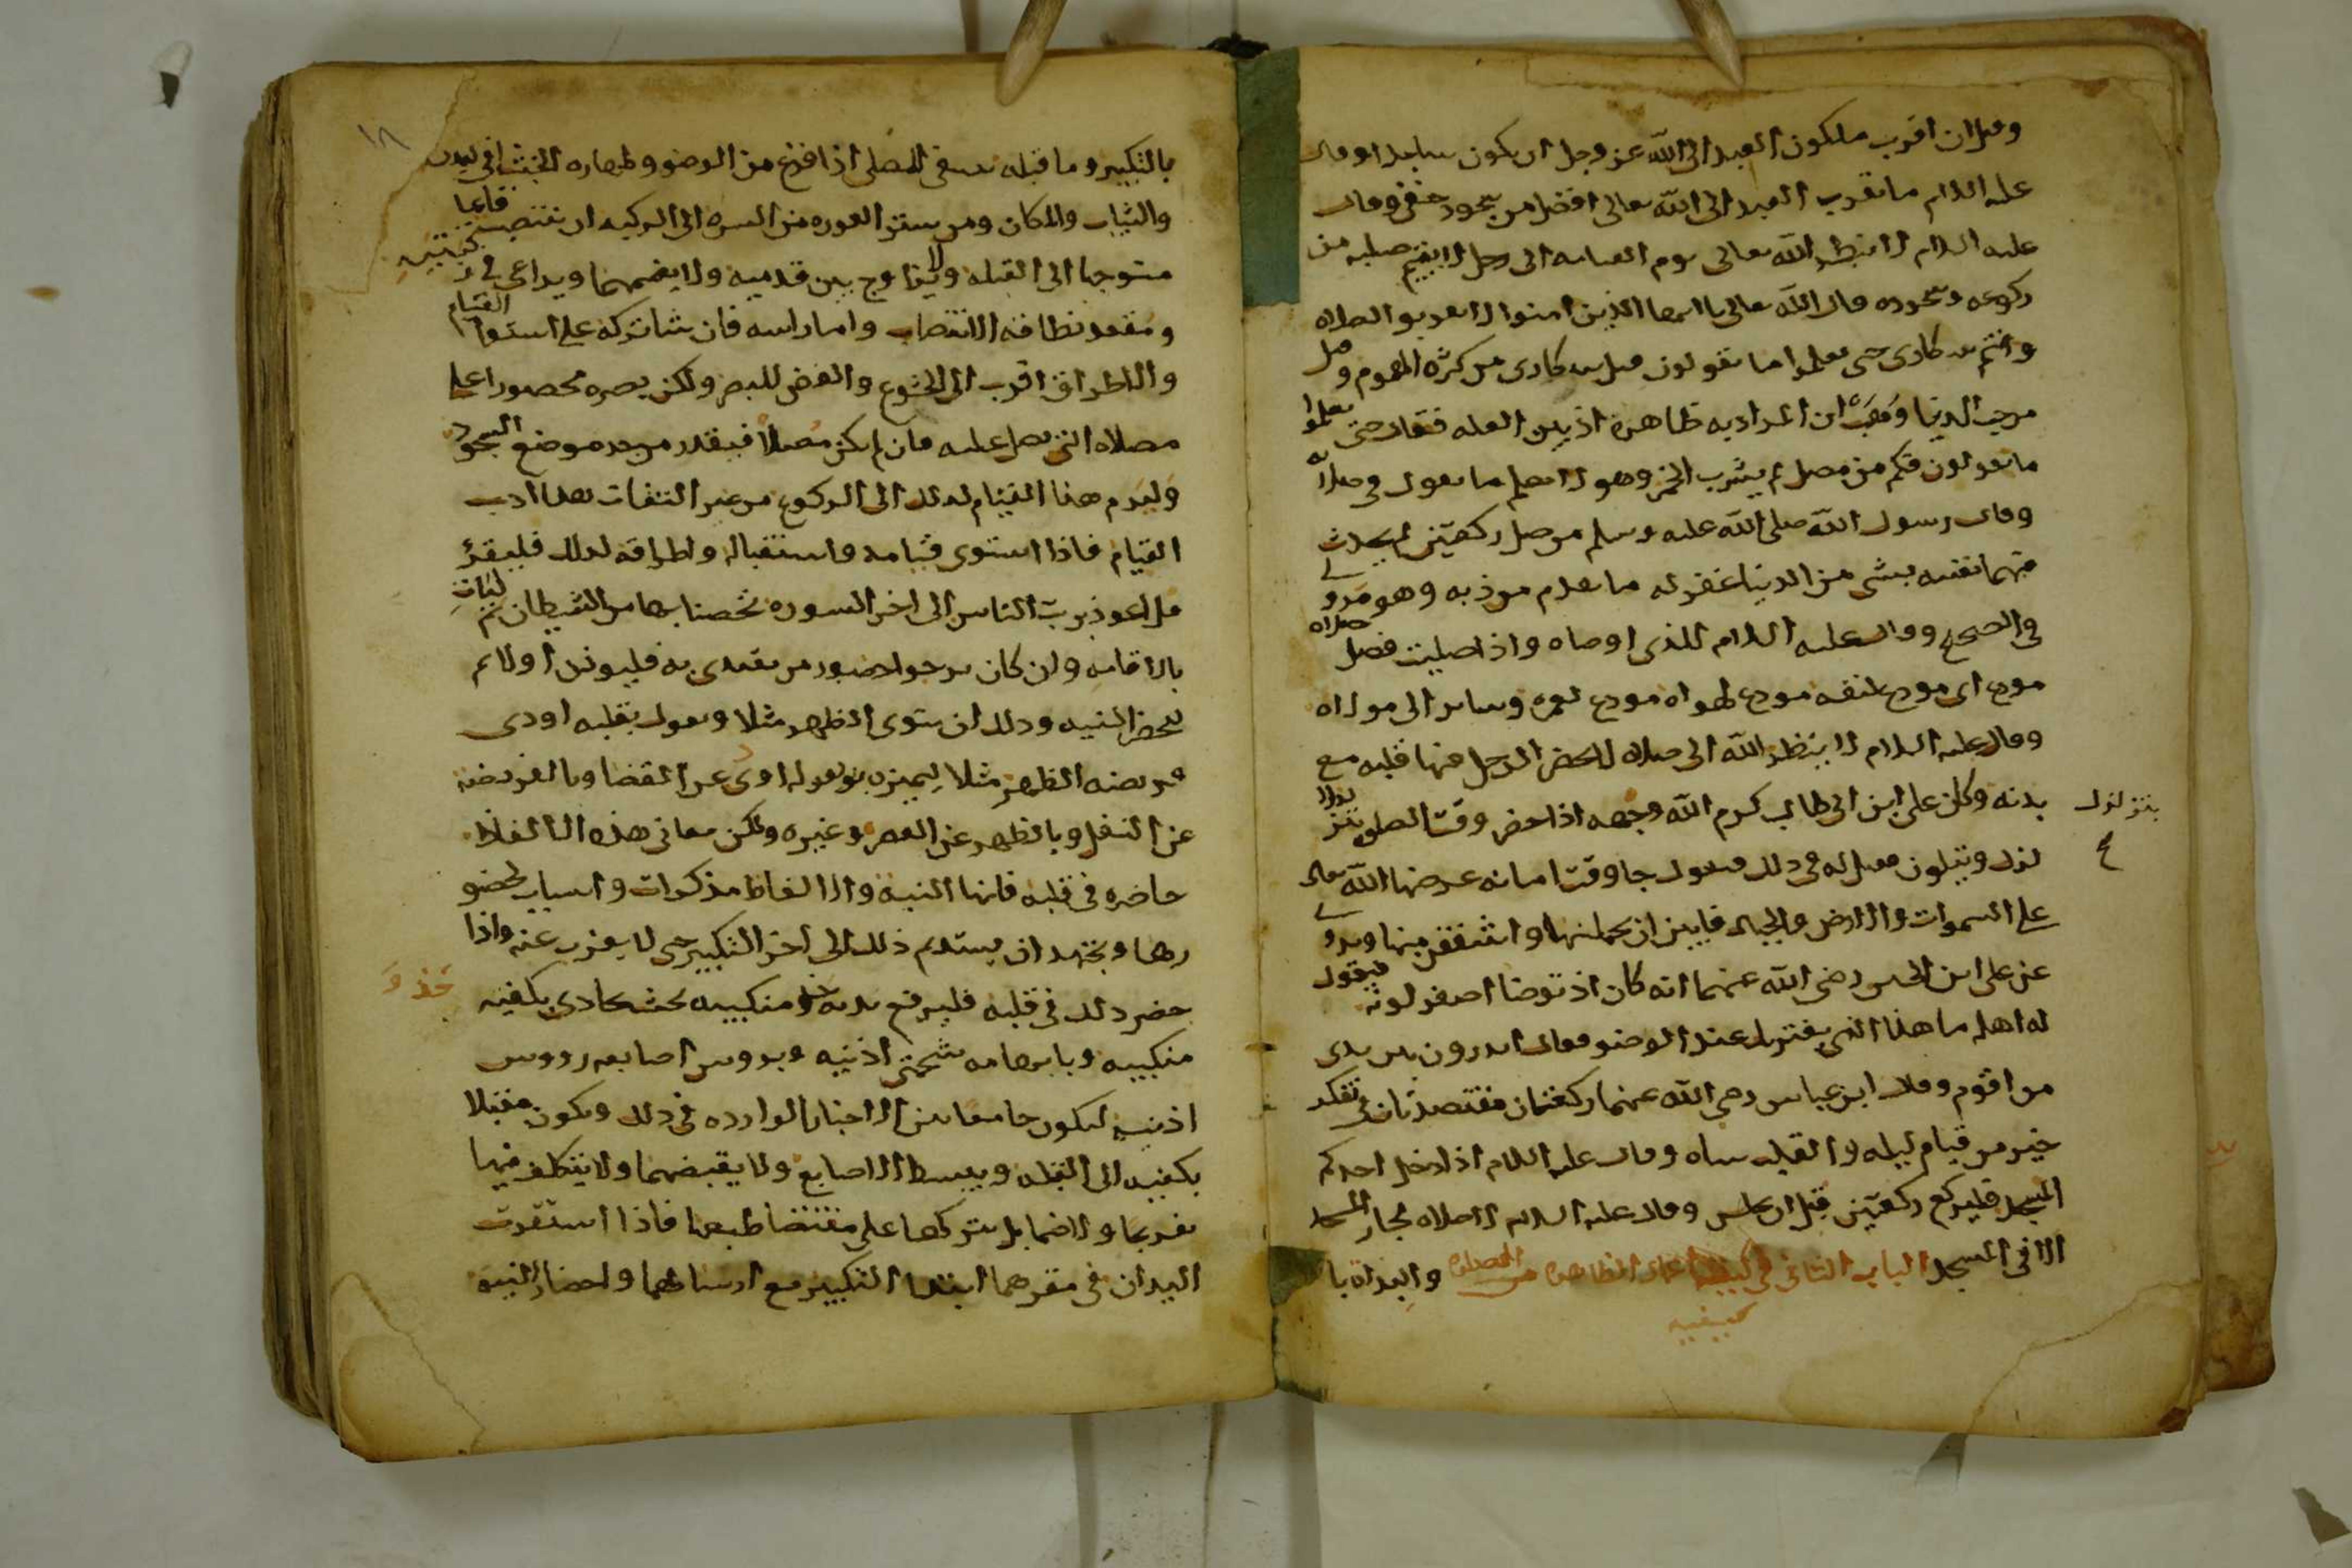 وقيل ان اقرب ما يكون العبد الى الله عز وجل ان يكون ساجدا وقال
عليه السلام ما تقرب العبد الى الله تعالى افضل من سجود خفي وقال
عليه السلام لا ينظر الله تعالى يوم القيامه الى رجل لا يقيم صلبه من
ركوعه وسجوده قال الله تعالى يا ايها الذين امنوا لا تقربوا الصلاه
وانتم سكارى حتى تعلموا ما تقولون قيل سكارى من كثره الهموم وقيل
من حب الدنيا وقال وهب ان المراد به ظاهره اذ بين العله فقال حتى تعلموا
ما تقولون فكم من مصل لم يشرب الخمر وهو لا يعلم ما يقول في صلاته
وقال رسول الله صلى الله عليه وسلم من صلى ركعتين لم يحدث
فيهما نفسه بشي من الدنيا غفر له ما تقدم من ذنبه وهو مروي
في الصحيح وقال عليه السلام للذي اوصاه واذا صليت فصل صلاه
مودع اي مودع لنفسه مودع لهواه مودع لعمره وساير الى مولاه
وقال عليه السلام لا ينظر الله الى صلاه لا يحضر الرجل فيها قلبه مع
بدنه وكان علي ابن ابي طالب كرم الله وجهه اذا حضر وقت الصلوه يتز
يتزلزل
لزل ويتلون فقيل له في ذلك فيقول جا وقت امانه عرضها الله تعالى
على السموات والارض والجبال فابين ان يحملنها واشفقن منها وروي
عن علي ابن الحسين رضي الله عنهما انه كان اذ توضا اصفر لونه فيقول
له اهله ما هذا الذي يعتريك عند الوضو فقال اتدرون بين يدي
من اقوم وقال ابن عباس رضي الله عنهما ركعتان مقتصدتان في تفكر
خير من قيام ليله والقلب ساه وقال عليه السلام اذا دخل احدكم
المسجد فليركع ركعتين قبل ان يجلس وقال عليه السلام لا صلاه لجار المسجد
الا في المسجد الباب الثاني في كيفيه اعمال الظاهره من الصلوه والبداة با
كيفيه
١٨
بالتكبير وما قبله ينبغي للمصلي اذا فرغ من الوضو وطهاره الخبث في البدن
والثياب والمكان ومن ستر العوره من السره الى الركبه ان ينتصب قايما
متوجها الى القبله ولا يزاوج بين قدميه ولا يضمهما ويراعي في ركبتيه
ومعقد نطاقه الانتصاب واما راسه فان شا تركه على استوا القيام
والاطراق اقرب الى الخشوع والغض للبصر ولكن بصره محصورا على
مصلاه الذي يصلي عليه فان لم يكن مصلا فيقدر من حد موضع السجود
وليدم هذا القيام كذلك الى الركوع من غير التفات هذا ادب
القيام فاذا استوى قيامه واستقباله واطراقه كذلك فليقرئ
قل اعوذ برب الناس الى اخر السوره تحصنا بها من الشيطان ثم ليات
بالاقامه وان كان يرجوا حضور من يقتدي به فليوذن اولا ثم
ليحضر النيه وذلك ان ينوي الظهر مثلا ويقول بقلبه اودي
فريضه الظهر مثلا ليميزه بقوله اودي عن القضا وبالفريضه
عن النفل وبالظهر عن العصر وغيره ولكن معاني هذه الالفاظ
حاضره في قلبه فانها النيه والالفاظ مذكرات واسباب لحضو
رها ويجتهد ان يستديم ذلك الى اخر التكبير حتى لا يعزب عنه واذا
حضر ذلك في قلبه فليرفع يديه حذو منكبيه بحيث يحاذي بكفيه
حذو
منكبيه وبابهاميه شحمتي اذنيه وبرووس اصابعه رووس
اذنيه ليكون جامعا بين الاخبار الوارده في ذلك ويكون مقبلا
بكفيه الى القبله ويبسط الاصابع ولا يقبضهما ولا يتكلف فيها
تفريجا ولا ضما بل يتركها على مقتضا طبعها فاذا استقرت
اليدان في مقرهما ابتدا التكبير مع ارسالهما واحضار النيه